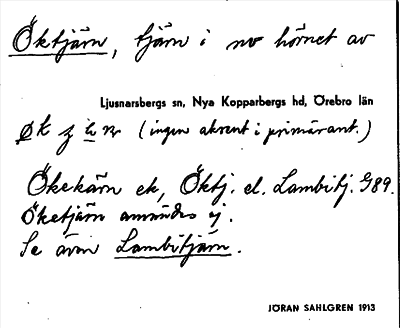 Öktjärn, tjärn i nv hörnet av
Ljusnarsbergs sn, Nya Kopparbergs hd, Örebro län
(ingen akcent i primärant.)
Ökekärn ek, Öktj. el. Lambitj. G89.
Öketjärn användes ej.
Se även Lambitjärn.
JÖRAN SAHLGREN 1913